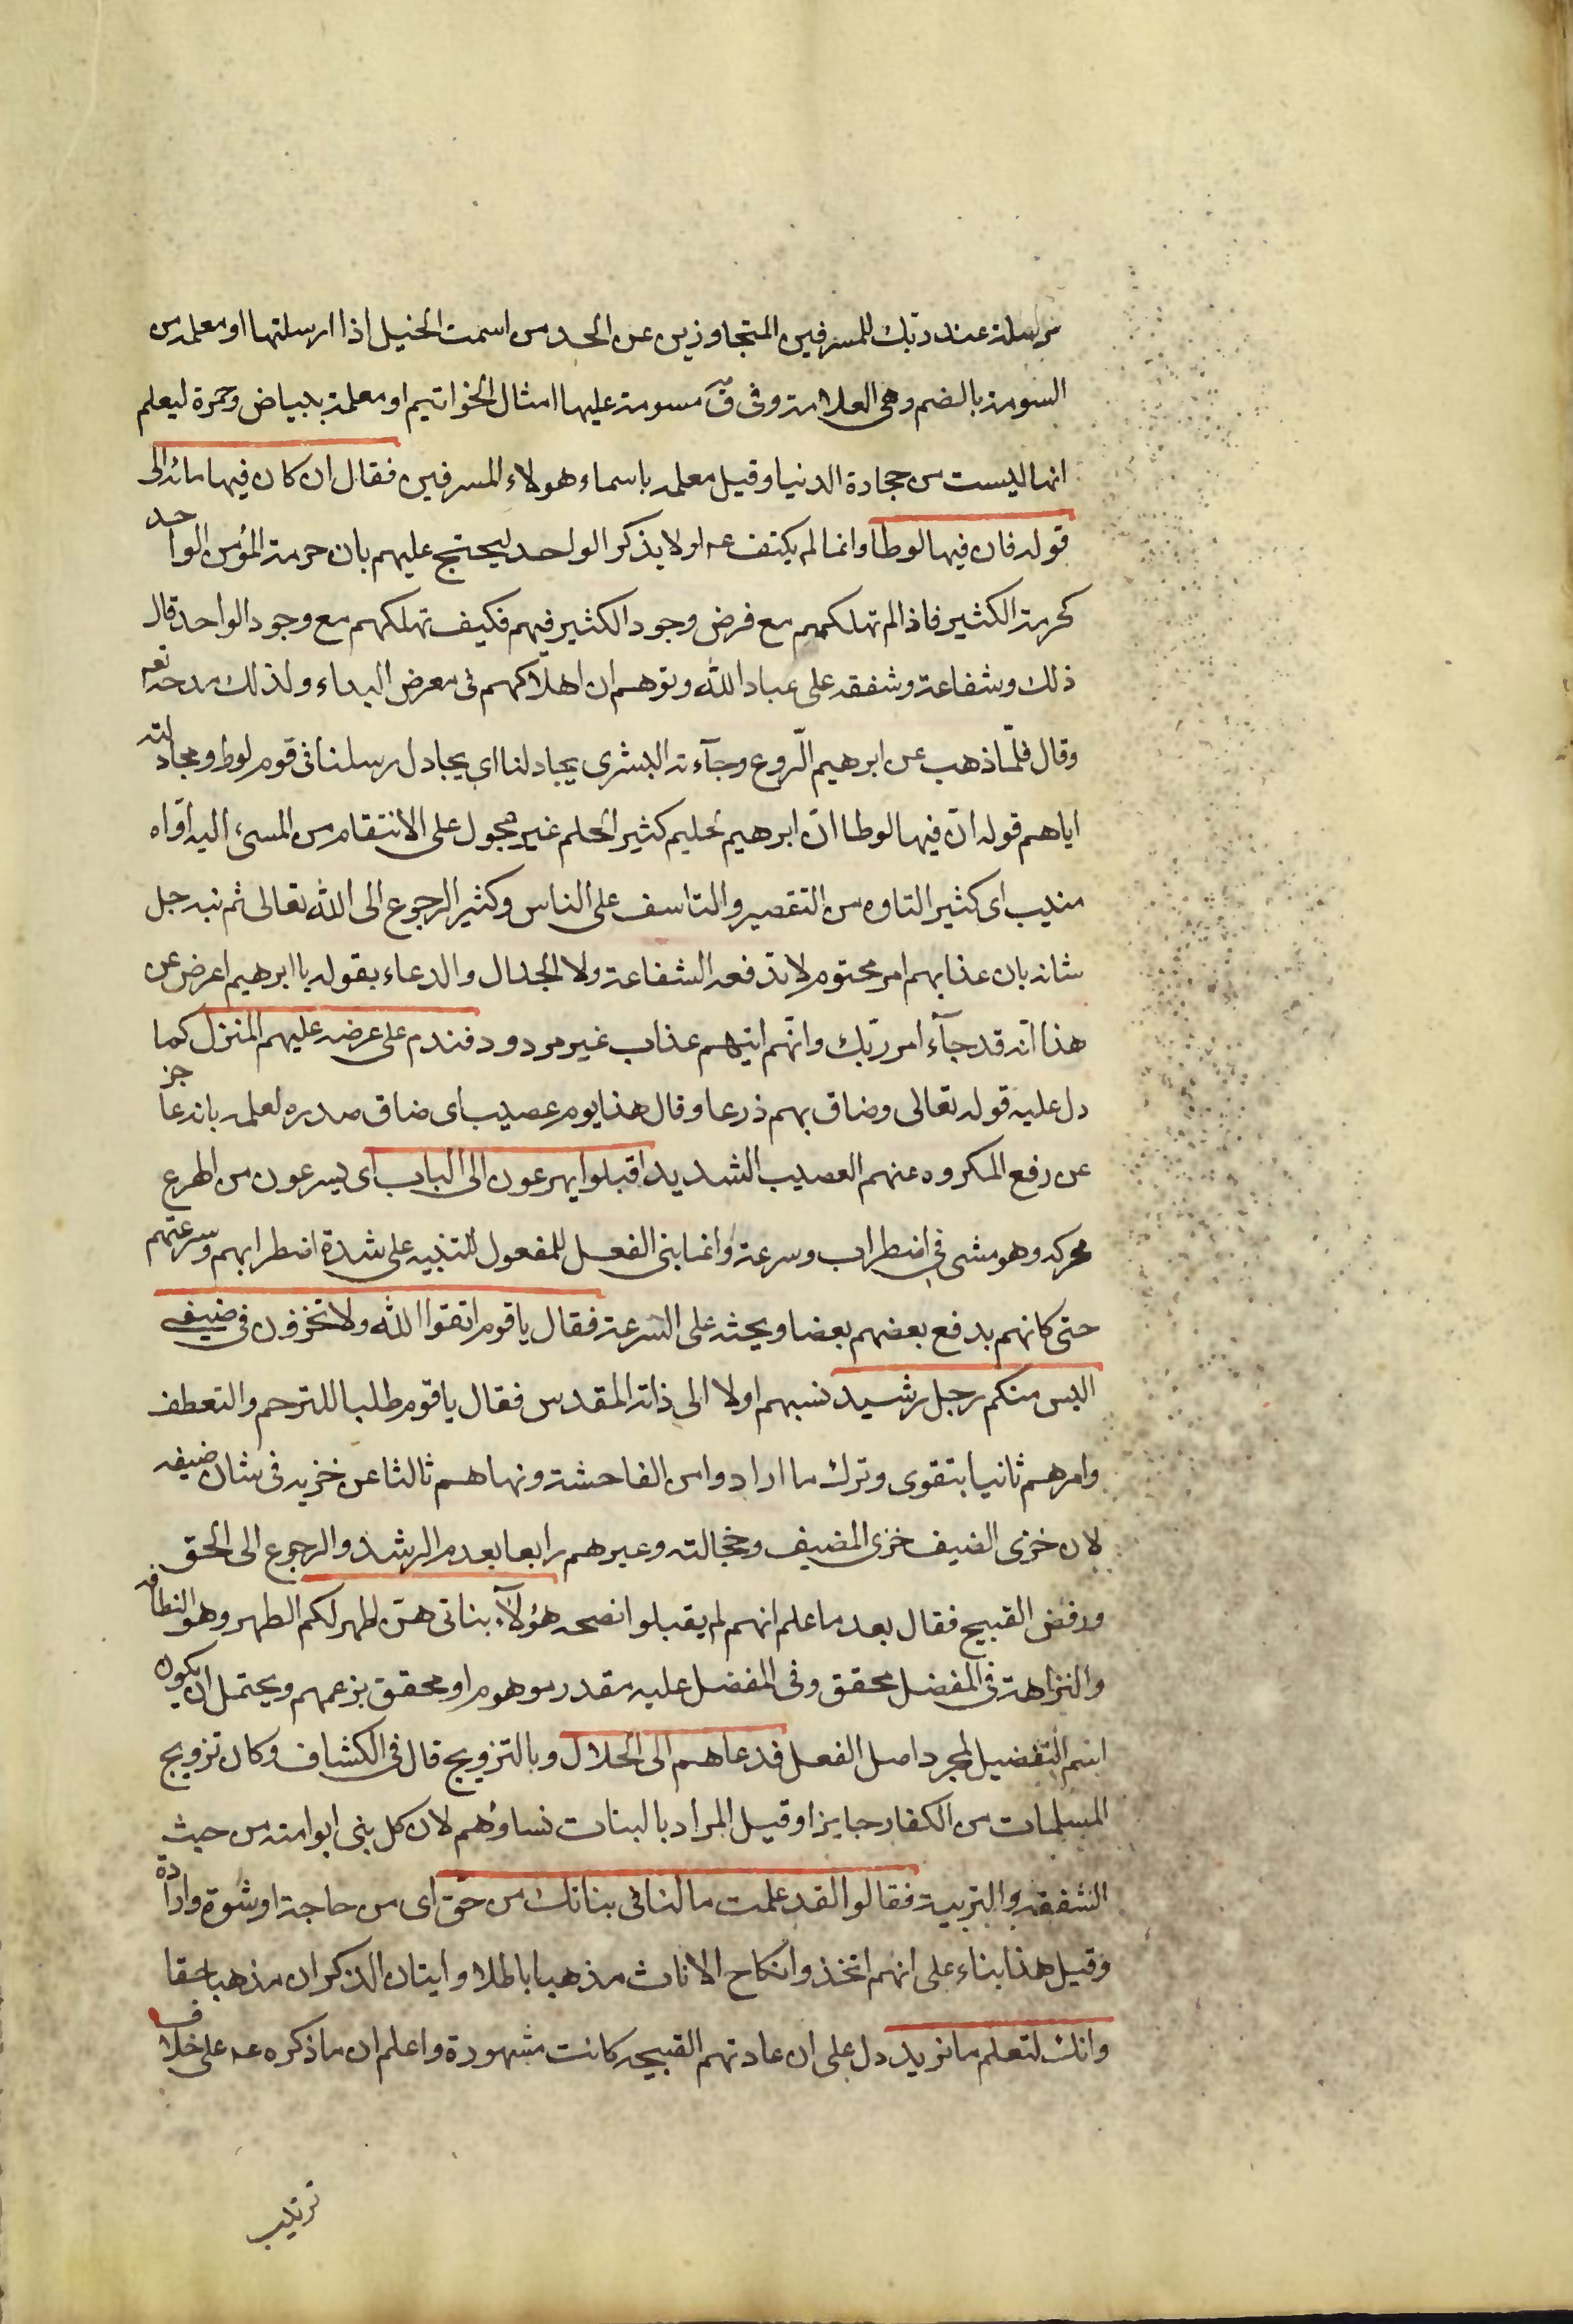 مرسلة عند ربّك للمسرفين المتجاوزين عن الحد من اسمت الخيل اذا ارسلتها او معلمه من
السومة بالضم وهى العلامة وفى ق مسومة عليها امثال الخواتيم او معلمة ببياض وحمرة ليعلم
انها ليست من حجارة الدنيا وقيل معلمه باسماء هولاء المسرفين فقال ان كان فيها مائه الى
قوله فان فيها لوطا وانما لم يكتف عه اولا بذكر الواحد ليحتج عليهم بان حرمة المؤمن الواحد
كحرمة الكثير فاذا لم تهلكهم مع فرض وجود الكثير فيهم فكيف تهلكهم مع وجود الواحد قال
ذلك وشفاعة وشفقه على عباد الله وتوهم ان اهلاكهم فى معرض البداء ولذلك مدحه تعه
وقال فلمّا ذهب عن ابرهيم الرّوع وجآءته البشرى يجادلنا اى يجادل رسلنا فى قوم لوط ومجادلته
اياهم قوله انّ فيها لوطا انّ ابرهيم لحليم كثير الحلم غير عجول على الانتقام من المسىء اليه اوّاه
منيب اى كثير التاوه من التقصير والتاسف على الناس وكثير الرجوع الى الله تعالى ثم نبه جل
شانه بان عذابهم امر محتوم لا تدفعه الشفاعة ولا الجدال والدعاء بقوله يا ابرهيم اعرض عن
هذا انّه قد جآء امر ربّك وانّهم اتيهم عذاب غير مردود فندم على عرضه عليهم المنزل كما
دل عليه قوله تعالى وضاق بهم ذرعا وقال هذا يوم عصيب اى ضاق صدره لعلمه بانه عاجز
عن رفع المكروه عنهم العصيب الشديد اقبلوا يهرعون الى الباب اى يسرعون من الهرع
محركه وهو مشى فى اضطراب وسرعة وانما بنى الفعل للمفعول للتنبيه على شدة اضطرابهم وسرعتهم
حتى كانهم يدفع بعضهم بعضا ويحثه على السرعة فقال يا قوم اتقوا الله ولا تخزون فى ضيفى
اليس منكم رجل رشيد نسبهم اولا الى ذاته المقدس فقال يا قوم طلبا للترحم والتعطف
وامرهم ثانيا بتقوى وترك ما ارادوا من الفاحشة ونهاهم ثالثا عن خزيه فى شان ضيفه
لان خزى الضيف خزى المضيف وخجالته وعيرهم رابعا بعدم الرشد والرجوع الى الحق
ورفض القبيح فقال بعد ما علم انهم لم يقبلوا نصحه هؤلآء بناتى هنّ اطهر لكم الطهر وهو النظافه
والنزاهة فى المفضل محقق وفى المفضل عليه مقدر موهوم او محقق بزعمهم ويحتمل ان يكون
اسم التفضيل لمجرد اصل الفعل فدعاهم الى الحلال وبالتزويج قال فى الكشاف وكان تزويج
المسلمات من الكفار جايزا وقيل المراد بالبنات نساؤهم لان كل نبى ابو امته من حيث
الشفقه والتربية فقالوا لقد علمت ما لنا فى بناتك من حق اى من حاجة او شهوة وارادة
وقيل هذا بناء على انهم اتخذوا نكاح الاناث مذهبا باطلا وايتان الذكران مذهبا حقا
وانك لتعلم ما نريد دل على ان عادتهم القبيحه كانت مشهورة واعلم ان ما ذكره عه على خلاف
ترتيب